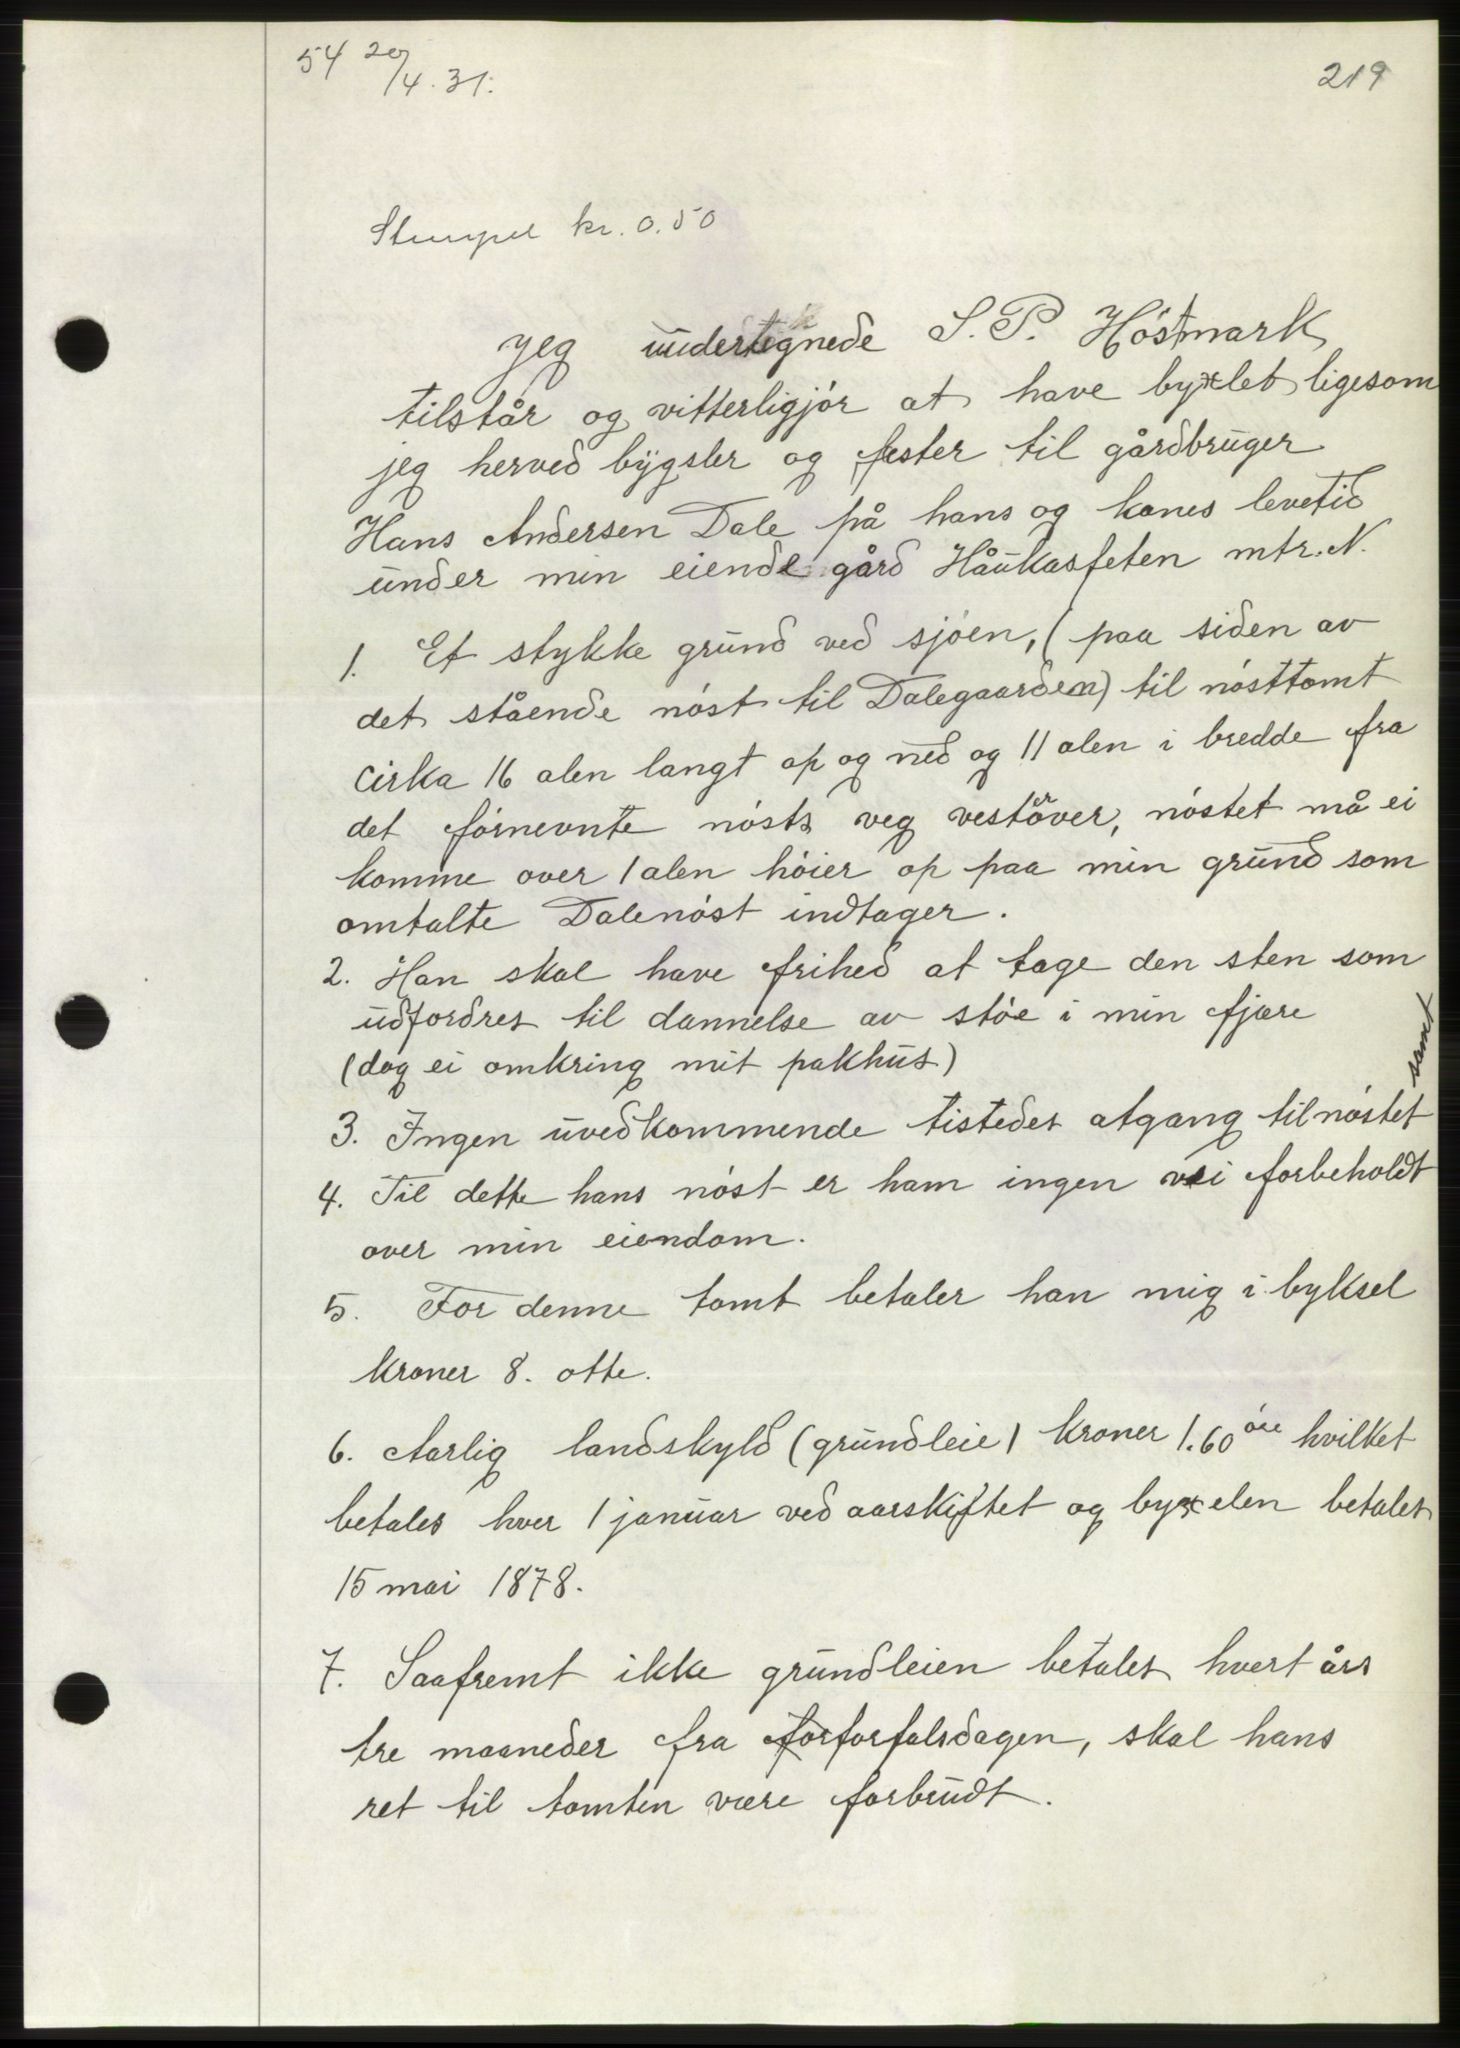 54 20/4.31.
219
Stempel kr. 0.50
Jeg undertegnede S. P. Höstmark
tilstår og vitterligjör at have byxlet ligesom
jeg herved bygsler og fester til gårdbruger
Hans Andersen Dale på hans og kones levetid
under min eiende gård Håukasfeten mtr. N.
1. Et stykke grund ved sjöen, (paa siden av
det stående nöst til Dalegaarden) til nösttomt
cirka 16 alen langt op og ned og 11 alen i bredde fra
det förnevnte nösts veg vestöver, nöstet må ei
komme over 1 alen höier op paa min grund som
omtalte Dalenöst indtager.
2. Han skal have frihed at tage den sten som
udfordres til dannelse av stöe i min fjære
(dog ei omkring mit pakhus)
3. Ingen uvedkommende tistedes atgang til nöstet samt
4. Til dette hans nöst er ham ingen vei forbeholdt
over min eiendom.
5. For denne tomt betaler han mig i byksel
kroner 8. otte.
6. Aarlig landskyld (grundleie) kroner 1.60 öre hvilket
betales hver 1 januar ved aarskiftet og byxelen betales
15 mai 1878.
7. Saafremt ikke grundleien betales hvert års
tre maaneder fra forforfalsdagen, skal hans
ret til tomten være forbrudt.